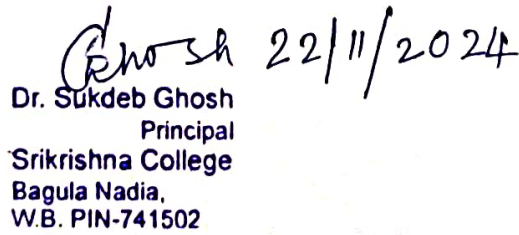 Ghosh 22/11/2024
Dr. Sukdeb Ghosh
Principal
Srikrishna College
Bagula Nadia,
W.B. PIN-741502